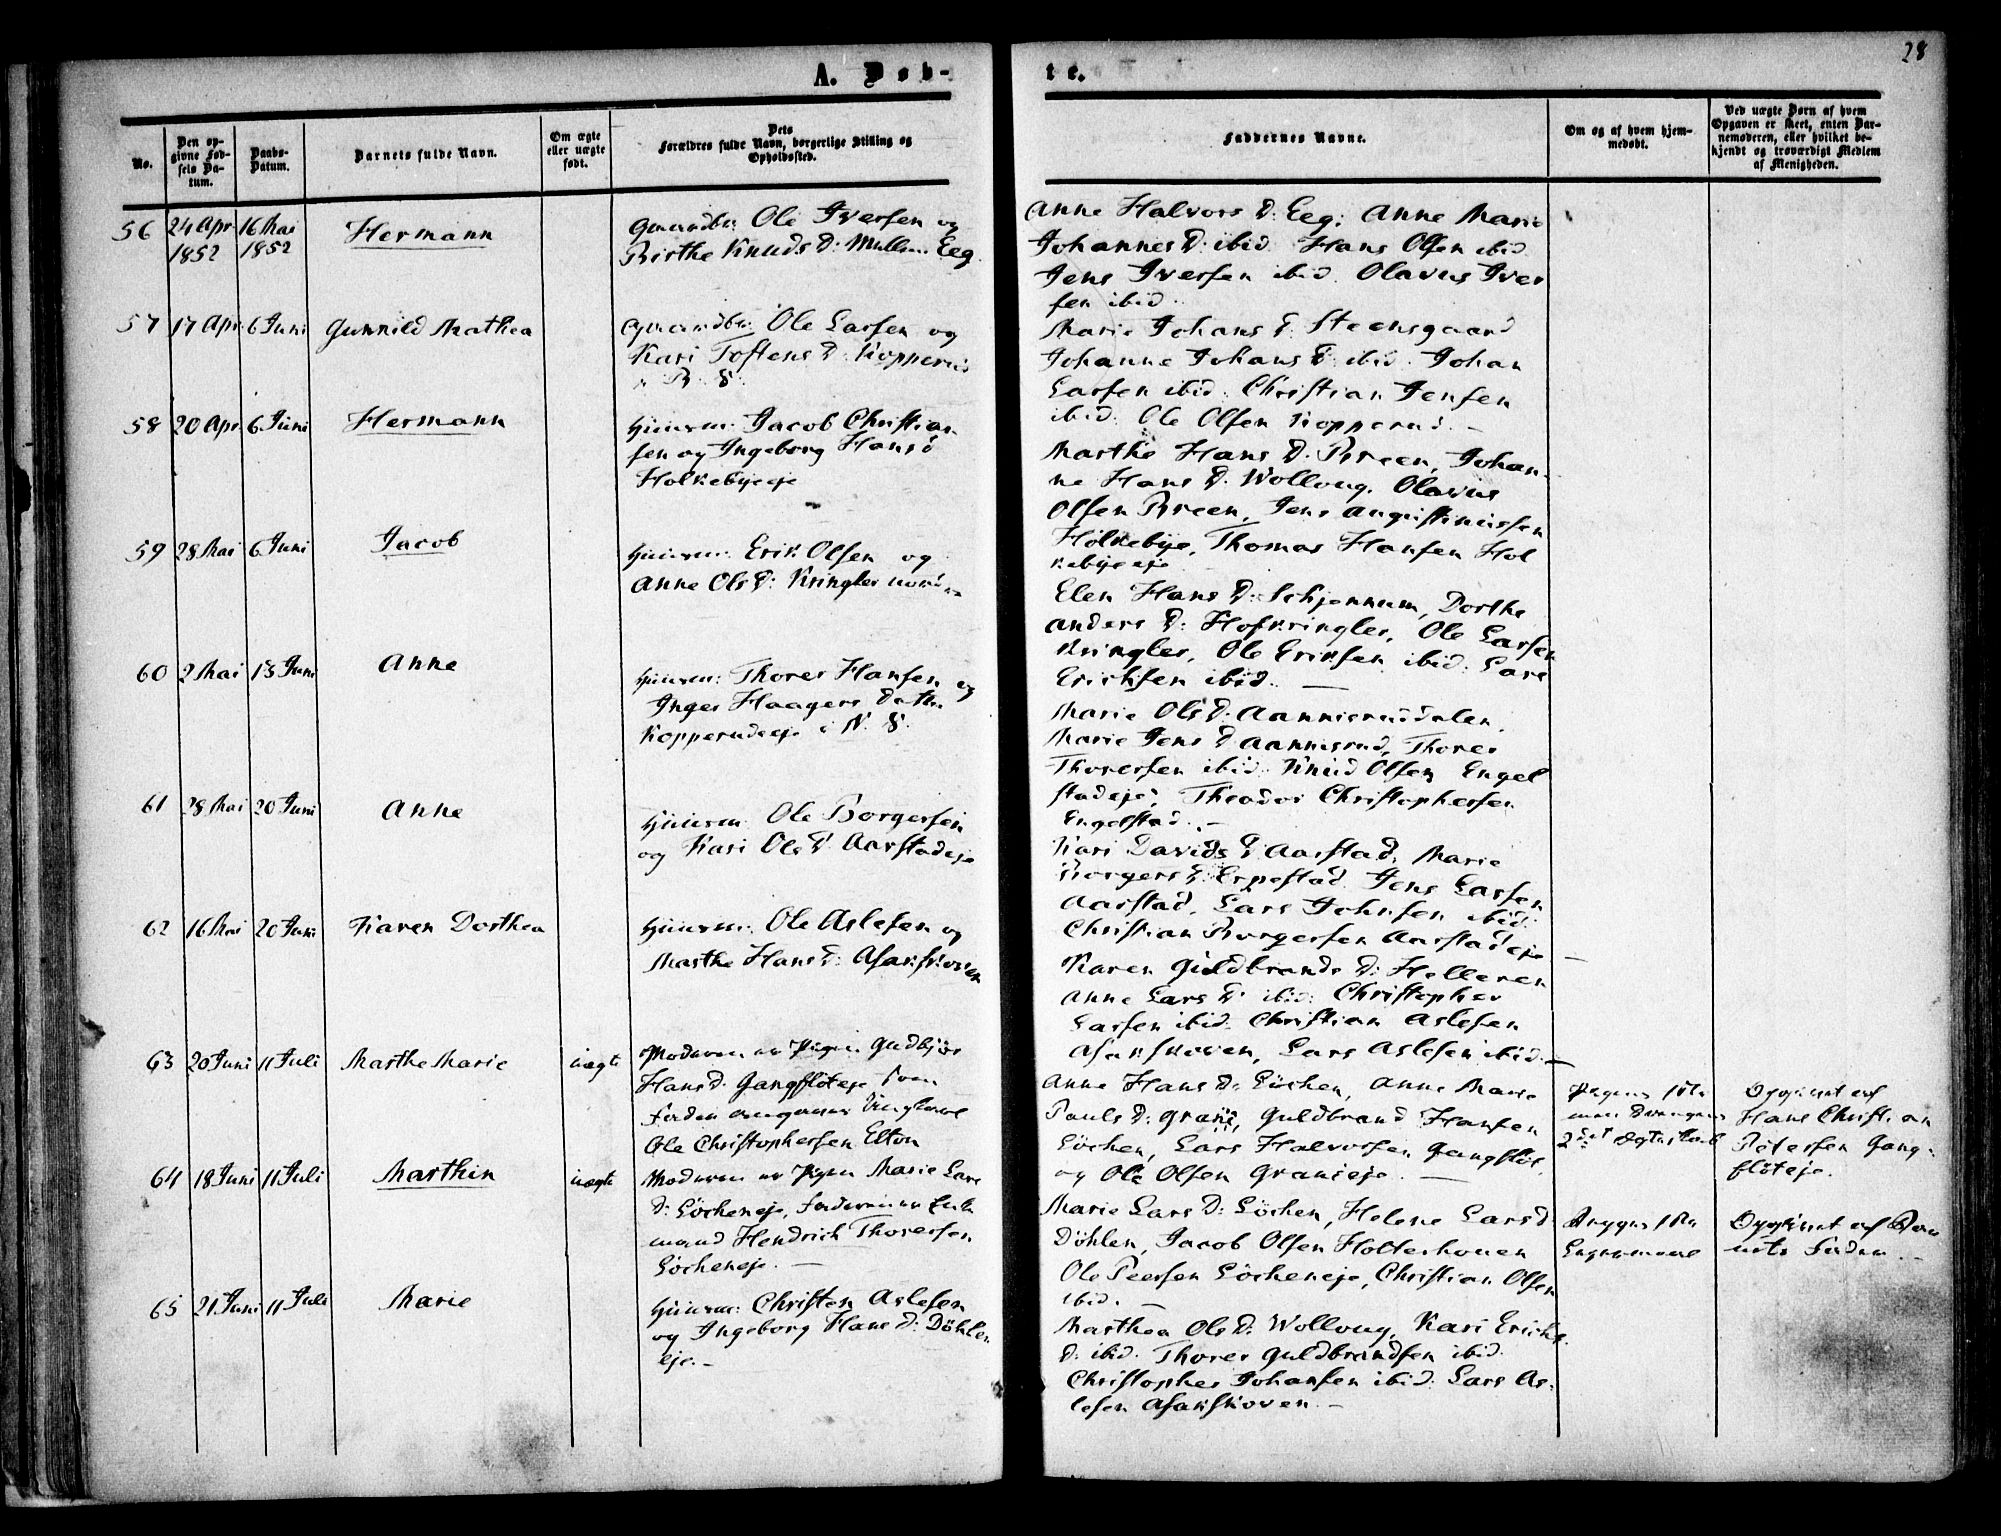 28
A. Døb-
te.
No.
Den op-
givne Fød-
sels Da-
tum.
Daabs-
Datum.
Barnets fulde Navn.
Om ægte
eller uægte
født.
Dets
Forældres fulde Navn, borgerlige Stilling og
Opholdssted.
Faddernes Navne.
Om og af hvem hjem-
medøbt.
Ved uægte Børn af hvem
Opgaven er skeet, enten Bar-
nemoderen, eller hvilket be-
kjendt og troværdigt Medlem
af Menigheden.
56
24 Apr
1852
16 Mai
1852
Hermann
Gaardbr. Ole Iversen og
Birthe Knuds D: Eeg.
Anne Halvors D: Eeg; Anne Marie
Johannes D: ibid. Hans Olsen ibid.
Jens Iversen ibid. Olavus Iver
sen ibid.
57
17 Apr
6 Juni
Gunnild Mathea
Gaardbr. Ole Larsen og
Kari Toftens D: Kopperud
Marie Johans D: Steensgaard
Johanne Johans D: ibid. Johan
Larsen ibid. Christian Jensen
ibid. Ole Olsen Kopperud. –
58
20 Apr
6 Juni
Hermann
Huusm: Jacob Christian
sen og Ingeborg Hansd
Holkebyeje
Marthe Hans D. Breen, Johan-
ne Hans D. Wolloug. Olavus
Olsen Breen, Jens Augustinussen
Holkebye, Thomas Hansen Hol
kebyeeje
59
28 Mai
6 Juni
Jacob
Huusm: Erik Olsen og
Anne Ols D: Kringler
Elen Hans D: Schjennum, Dorthe
Anders D: Hofkringler, Ole Larsen
Kringler, Ole Eriksen ibid. Lars
Ericksen ibid. –
60
2 Mai
13 Juni
Anne
Huusm: Thorer Hansen og
Inger Haagens Datter
Kopperudeje i N. S.
Marie Ols D. Aanneruddalen,
Marie Jens D Aannerud, Thorer
Thoresen ibid. Knud Olsen Engel
stadeje, Theodor Christophersen
Engelstad. –
61
28 Mai
20 Juni
Anne
Huusm: Ole Borgersen
og Kari Ols D. Aarstadeje
Kari Davids D. Aarstad, Marie
Borgers D. Erpestad. Jens Larsen
Aarstad, Lars Johnsen ibid.
Christian Borgersen Aarstadeje –
62
16 Mai
20 Juni
Karen Dorthea
Huusm: Ole Aslesen og
Marthe Hans D: Asakskoven
Karen Guldbrands D: Helleren
Anne Lars D ibid: Christopher
Larsen ibid. Christian Aslesen
Asakskoven, Lars Aslesen ibid. –
63
20 Juni
11 Juli
Marthe Marie
uægte
Moderen er Pigen Gudbjør
Hans d. Gangflöteje
Faderen Ungkarl
Ole Christophersen Elton
Anne Hans D: Löchen, Anne Marie
Pouls D: Granie, Guldbrand Hansen
Löchen, Lars Halvorsen Gangflöt,
og Ole Olsen Granieeje. –
Opgivet af
Hans Christian
Petersen Gang-
flöteje.
64
18 Juni
11 Juli
Marthin
uægte
Moderen er Pigen Marie Lars
D: Löcheneje, Faderen er Enke
mand Hendrich Thoresen
Löcheneje. –
Marie Lars D: Löchen, Helene Lars D
Döhlen, Jacob Olsen Holterhouen
Ole Peersen Löcheneje, Christian Olsen
ibid. –
Opgivet af Bar
nets Fader. –
65
21 Juni
11 Juli
Marie
Huusm: Christen Aslesen
og Ingeborg Hans D: Döhlen
eje. –
Marthea Ols D: Wolloug, Kari Erichs
D: ibid. Thorer Guldbrandsen ibid.
Christopher Johansen ibid. Lars As-
lesen Asakskoven. –